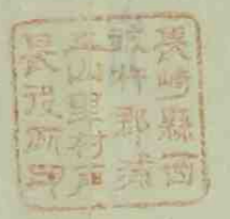 長崎縣西
彼杵郡浦
上山里村戸
長役所印